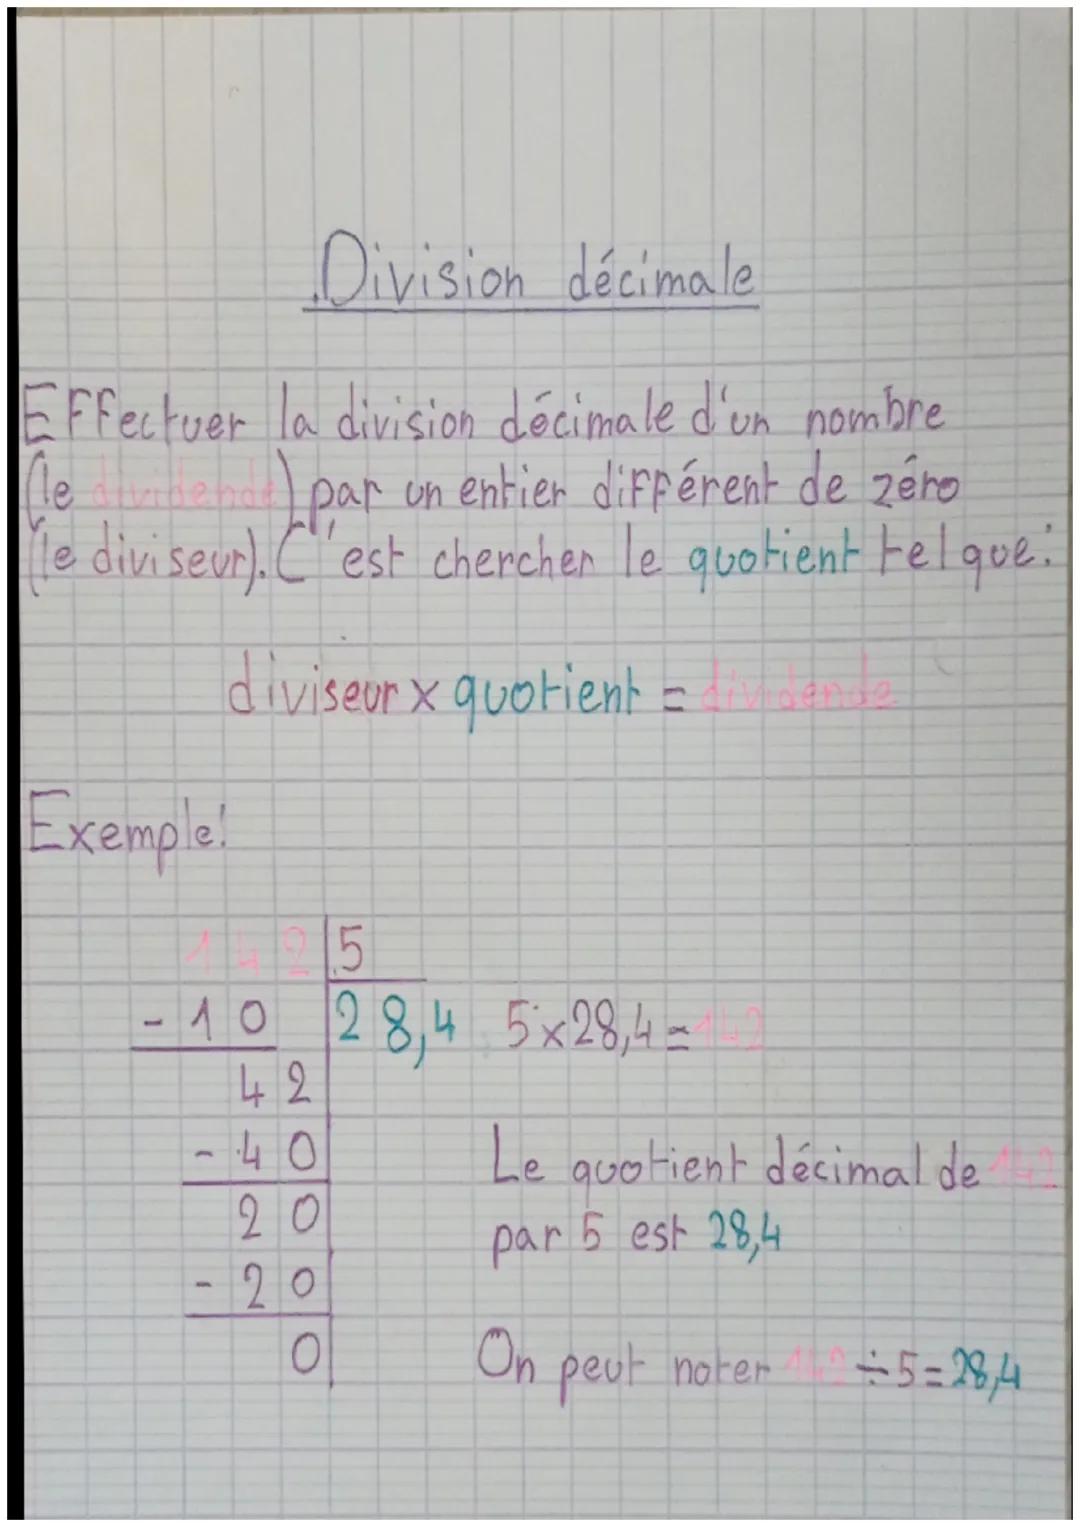 Division décimale
Effectuer la division décimale d'un nombre
(le dividende) par un entier différent de zéro
(le diviseur). C'est chercher le quotient tel que:
diviseur x quotient = dividende
Exemple:
142 5
- 10 28,4 5x28,4=142
42
- 40 Le quotient décimal de 142
20 par 5 est 28,4
- 20
0 On peut noter 142÷5=28,4